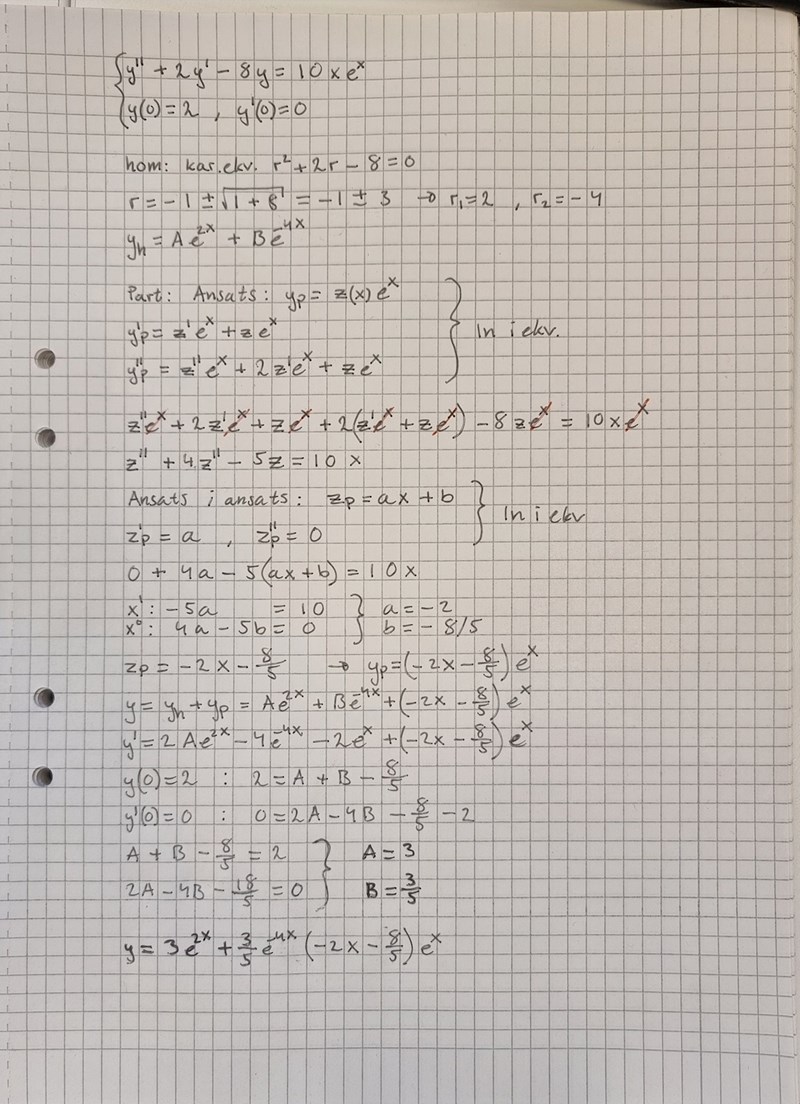 { y'' + 2y' - 8y = 10xeˣ
{ y(0) = 2 , y'(0) = 0
hom: kar.ekv. r² + 2r - 8 = 0
r = -1 ± √(1 + 8) = -1 ± 3 → r₁ = 2 , r₂ = -4
yₕ = Ae²ˣ + Be⁻⁴ˣ
Part: Ansats: yp = z(x)eˣ
y'p = z'eˣ + zeˣ } In i ekv.
y''p = z''eˣ + 2z'eˣ + zeˣ
z''eˣ + 2z'eˣ + zeˣ + 2(z'eˣ + zeˣ) - 8zeˣ = 10xeˣ
z'' + 4z'' - 5z = 10x
Ansats i ansats: zp = ax + b } In i ekv
z'p = a , z''p = 0
0 + 4a - 5(ax + b) = 10x
x¹: -5a = 10 } a = -2
x⁰: 4a - 5b = 0 } b = -8/5
zp = -2x - 8/5 → yp = (-2x - 8/5)eˣ
y = yₕ + yp = Ae²ˣ + Be⁻⁴ˣ + (-2x - 8/5)eˣ
y' = 2Ae²ˣ - 4e⁻⁴ˣ - 2eˣ + (-2x - 8/5)eˣ
y(0) = 2 : 2 = A + B - 8/5
y'(0) = 0 : 0 = 2A - 4B - 8/5 - 2
A + B - 8/5 = 2 } A = 3
2A - 4B - 18/5 = 0 } B = 3/5
y = 3e²ˣ + 3/5 e⁻⁴ˣ (-2x - 8/5)eˣ